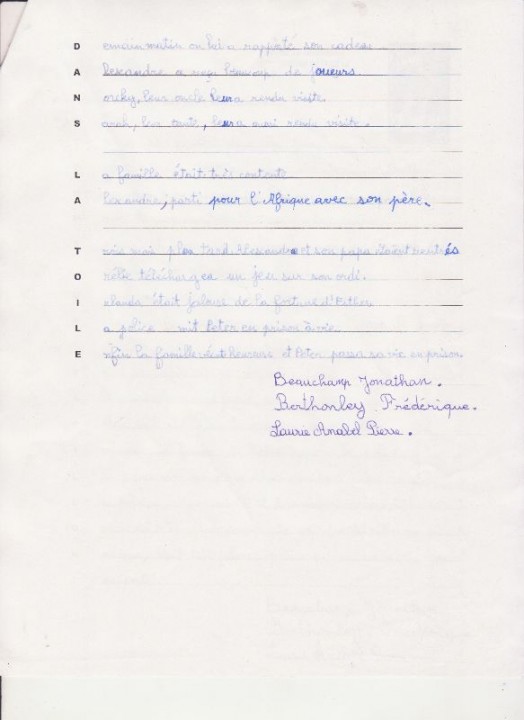 Demain matin on lui a rapporté son cadeau
Alexandre a reçu beaucoup de joueurs.
N leur oncle leur a rendu visite.
Sarah, leur leur a aussi rendu visite.
La famille était très contente
Alexandre, parti pour l'Afrique avec son père.
T mois plus tard Alexandre et son papa rentrés
O télécharger un jeu sur son ordi.
I était jalouse de la fortune d'
La police mit Peter en prison à vie.
Enfin la famille est heureuse et Peter passa sa vie en prison.
Beauchamp Jonathan.
Berthonley Frédérique.
Laurie Anabel Pierre.